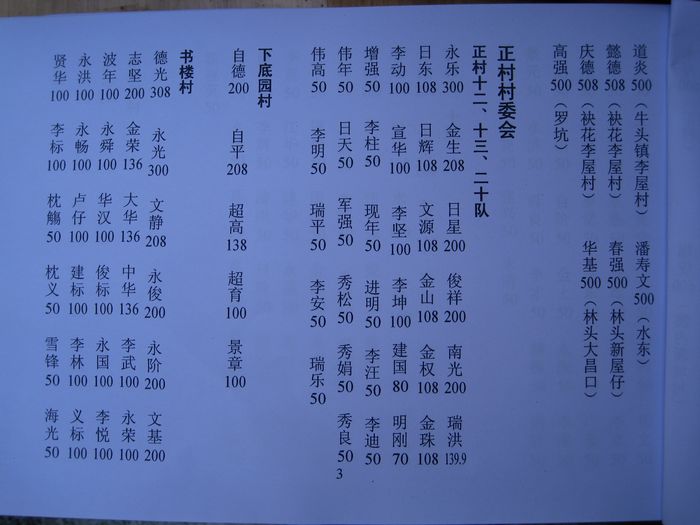 道炎500（牛头镇李屋村） 潘寿文500（水东）
懿德508（袂花李屋村） 春强500（林头新屋仔）
庆德508（袂花李屋村） 华基500（林头大昌口）
高强500（罗坑）
正村村委会
正村十二、十三、二十队
永乐300 金生208 日星200 俊祥200 南光200 瑞洪139.9
日东108 日辉108 文源108 金山108 金权108 金珠108
李动100 宣华100 李坚100 李坤100 建国80 明刚70
增强50 李柱50 现年50 进明50 李汪50 李迪50
伟年50 日天50 军强50 秀松50 秀娟50 秀良50
伟高50 李明50 瑞平50 李安50 瑞乐50
下底园村
自德200 自平208 超高138 超育100 景章100
书楼村
德光308 永光300 文静208 永俊200 永阶200 文基200
志坚200 金荣136 大华136 中华136 李武100 永荣100
波年100 永舜100 华汉100 俊标100 永国100 李悦100
永洪100 永畅100 卢仔100 建标100 李林100 义标100
贤华100 李标100 枕觞50 枕义50 雪锋50 海光50
3